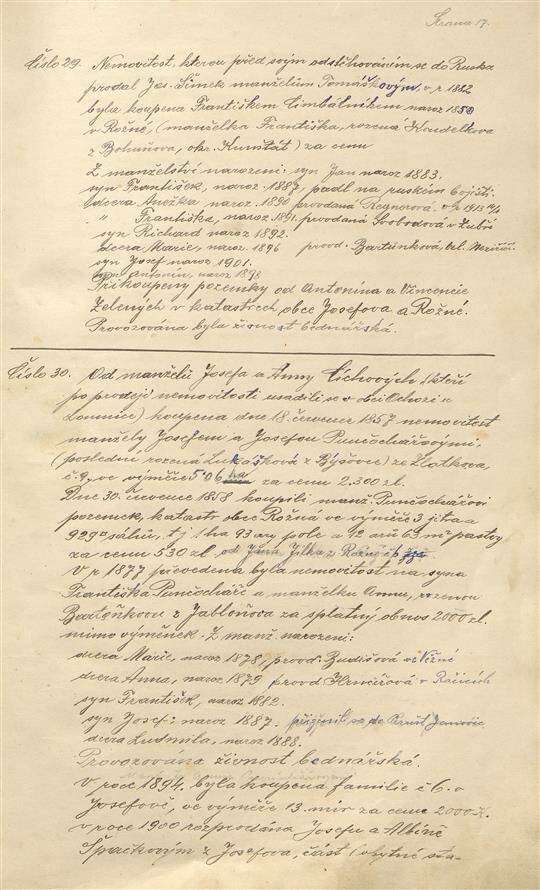 Strana 17.
Číslo 29. Nemovitost, kterou před svým odstěhováním se do Ruska
prodal Jos. Šimek manželům Tomáškovým, v r 1882
byla koupena Františkem Cimbálníkem naroz 1850
v Rožné, (manželka Františka, rozená Koudelkova
z Bohuňova, okr. Kunštát) za cenu
Z manželství narozeni: syn Jan naroz 1883.
syn František, naroz. 1887, padl na ruském bojišti.
dcera Anežka naroz. 1890 provdaná v r 1913
" Františka, naroz. 1891. provdaná Svobodová v
syn Richard naroz 1892.
dcera Marie, naroz. 1896 provd. Bartůnková, vel. Meziříčí.
syn Josef naroz 1901.
syn Antonín, naroz 1898
Přikoupeny pozemky od Antonína a Vincencie
Zelených v katastrech obce Josefova a Rožné.
Provozována byla živnost bednářská.
Číslo 30. Od manželů Josefa a Anny Cichových (kteří
po prodeji nemovitosti usadili se v dol. Ochozi u
Lomnice) koupena dne 18. července 1857 nemovitost
manžely Josefem a Josefou Punčochářovými,
(poslední rozená Lukášková z Býšovce) ze Zlatkova,
č. 9, ve výměře 5·06 ha za cenu 2.300 zl.
Dne 30. července 1858 koupili manž. Punčochářovi
pozemek, katastr obce Rožná ve výměře 3 jitra a
929□ sáhů, t. j 1 ha 93 ary pole a 12 arů 63 m² pastvy
za cenu 530 zl. od Jana Jílka z Rožné
V r 1877 převedena byla nemovitost na syna
Františka Punčocháře a manželku Annu, rozenou
Bartoňkovu z Jabloňova za splatný obnos 2000 zl.
mimo výměnek. Z manž. narozeni:
dcera Marie, naroz 1878, provd. Budišová ve Věžné
dcera Anna, naroz 1879 provd Hrnčířová v Račicích
syn František, naroz. 1882.
syn Josef: naroz 1887. přiženil se do
dcera Ludmila, naroz 1888.
Provozována živnost bednářská.
V roce 1894, byla koupena familie č 6. v
Josefově, ve výměře 13. mír za cenu 2000 zl.
v roce 1900 rozprodána Josefu a Albíně
Špačkovým z Josefova, část (obytné sta-